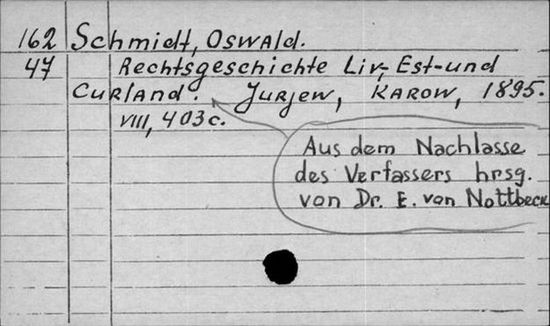 162 Schmidt, Oswald.
47 Rechtsgeschichte Liv-, Est- und
Curland. Jurjew, Karow, 1895.
VIII, 403 c.
Aus dem Nachlasse
des Verfassers hrsg.
von Dr. E. von Nottbeck